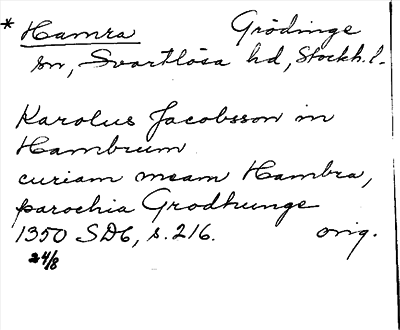 * Hamra Grödinge
sn, Svartlösa hd, Stockh. l.
Karolus Jacobsson in
Hambrum
curiam meam Hambra,
parochia Grodhunge
1350 SD6, s. 216. orig.
24/8